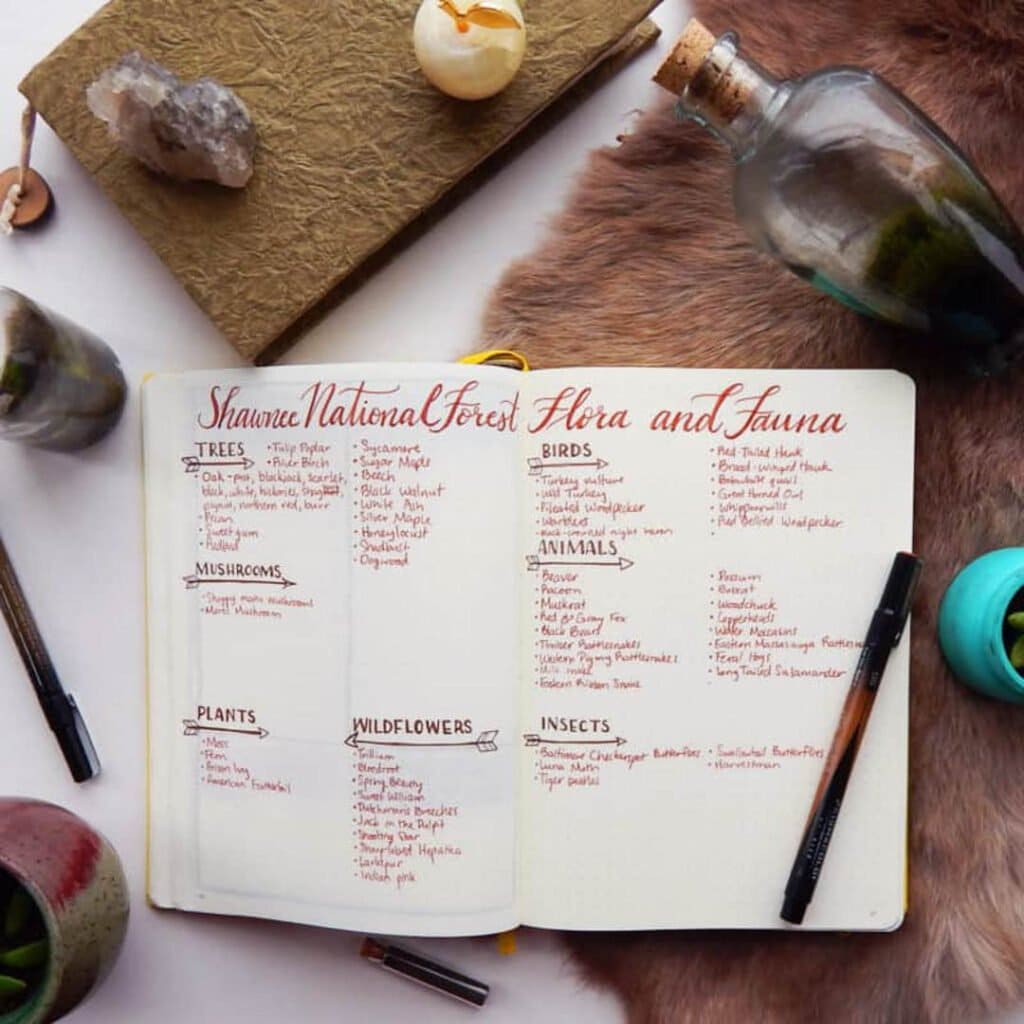 Shawnee National Forest Flora and Fauna
TREES
• Tulip Poplar
• River Birch
• Oak - post, blackjack, scarlet,
black, white, hickories,
pignut, northern red, burr
• Pecan
• Sweetgum
• Redbud
• Sycamore
• Sugar Maple
• Beech
• Black Walnut
• White Ash
• Silver Maple
• Honeylocust
• Shadbush
• Dogwood
MUSHROOMS
• Shaggy mane mushroom
• Morel Mushroom
PLANTS
• Moss
• Fern
• Poison Ivy
• American
WILDFLOWERS
• Trillium
• Bloodroot
• Spring Beauty
• Sweet William
• Dutchman's Breeches
• Jack in the Pulpit
• Shooting Star
• Sharp-lobed Hepatica
• Larkspur
• Indian pink
BIRDS
• Turkey vulture
• Wild Turkey
• Pileated Woodpecker
• Warblers
• black-crowned night heron
• Red-Tailed Hawk
• Broad-winged Hawk
• Bobwhite quail
• Great Horned Owl
• Whippoorwills
• Red Bellied Woodpecker
ANIMALS
• Beaver
• Racoon
• Muskrat
• Red & Gray Fox
• Black Bears
• Timber Rattlesnakes
• Western Pigmy Rattlesnakes
• Milk snake
• Eastern Ribbon Snake
• Possum
• Bobcat
• Woodchuck
• Copperheads
• Water Moccasins
• Eastern Massasauga
• Feral Hogs
• Long Tailed Salamander
INSECTS
• Baltimore Checkerspot Butterflies
• Luna Moth
• Tiger beetles
• Swallowtail Butterflies
• Harvestman